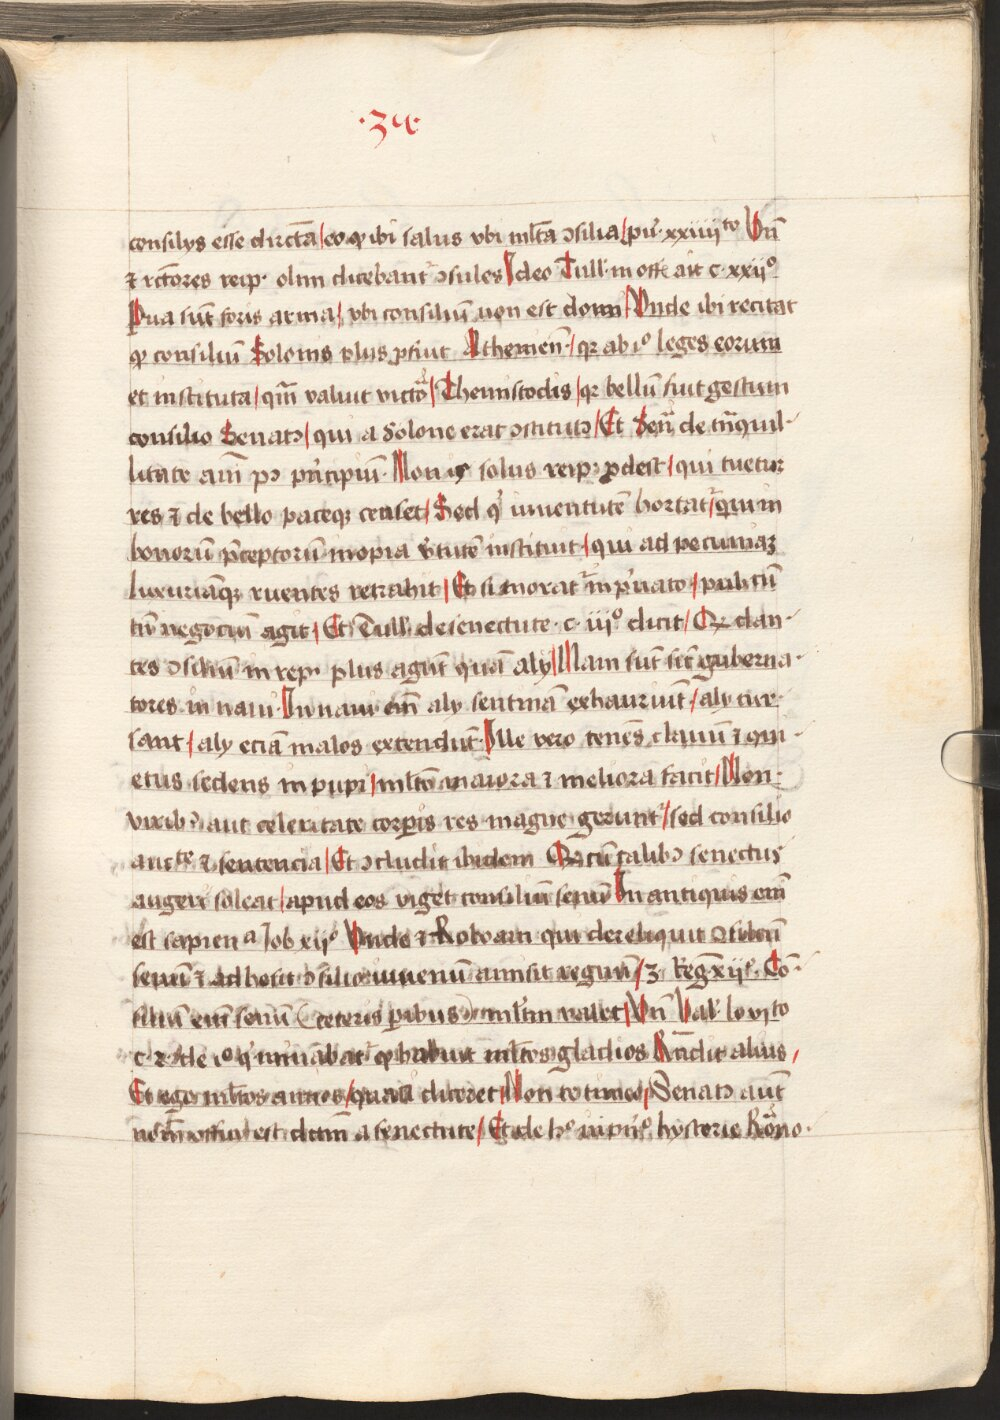 ·34·
consilijs esse dirctā / eo qͥ ibi salus vbi ml̄ta ɔsilia / pu͛·xxiiijto Vn̄
⁊ rc̄tores reip· olim dicebant᷑ ɔsules / Ideo Tull· in offꝭ ait c·xxijº
Pua sūt foris arma / vbi consiliū non est domi / Vnde ibi recitat
qͥ consiliū Solonis plus ꝓfuit Athenien̄ / qꝛ ab iº leges eorum
et instituta / qm̄ valuit victͣo / Themistoclis / qꝛ bellū fuit gestum
consilio Senatꝰ / qui a Solone erat ɔstitutꝰ / Et Senͣ de tnͣquil-
litate aīm pꝰ prͥncipiū· Non is solus reip· ꝓdest / qui tuetur
res ⁊ de bello paceqꝫ censet / Sed qͥ iuuentutē hortat᷑ / qui in
bonorū p̄ceptorū inopia v͛tutē instituit / qui ad pecuniaꝫ
luxuriāqꝫ ruentes retrahit / Et si morat᷑ in pͥuato / publicū
tn̄ negociū agit / Et Tull· de senectute · c· iiijº dicit / Qꝛ dan-
tes ɔsiliū in rep· plus agūt quā alij / Nam sūt sic̄ guberna-
tores in naui· In naui em̄ alij sentinā exhauriūt / alij cur-
sant / alij eciā malos extendūt· Ille vero tenēs clauū ⁊ qui-
etus sedens in pupi / ml̄to maiora ⁊ meliora facit / Non
viribꝰ aut celeritate corꝑis res magne gerunt᷑ / sed consilio
auctͭe ⁊ sentencia / Et ɔcludit ibidem Qꝛ cū talibꝰ senectus
augeri soleat / apud eos viget consiliū senū In antiquis em̄
est sapienͣ Job xijº Vnde ⁊ Roboam qui dereliquit ɔsiliū
senū ⁊ adhesit ɔsilio iuuenū amisit regnū / 3 Reg̅ xijº· Cō-
siliū em̄ senū ceteris ꝑibus ml̄tm valet / Vn̄ Val͛· lo vjto
c· 2· de iº qͥ mīabat᷑ qͥ habuit ml̄tos gladios Rn̄dit alius /
Et ego ml̄tos annos / diceret / Non te timeo / Senatꝰ aūt
est dictm̄ a senectute / Et de hº in pͥnº hystorie Rͣono-